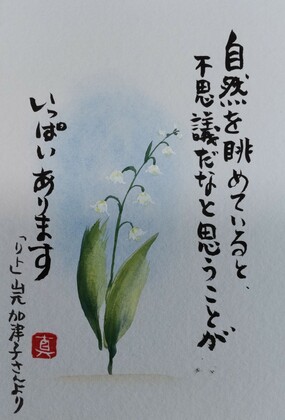 自然を眺めていると、
不思議だなと思うことが
いっぱいあります
「リト」山元加津子さんより
真